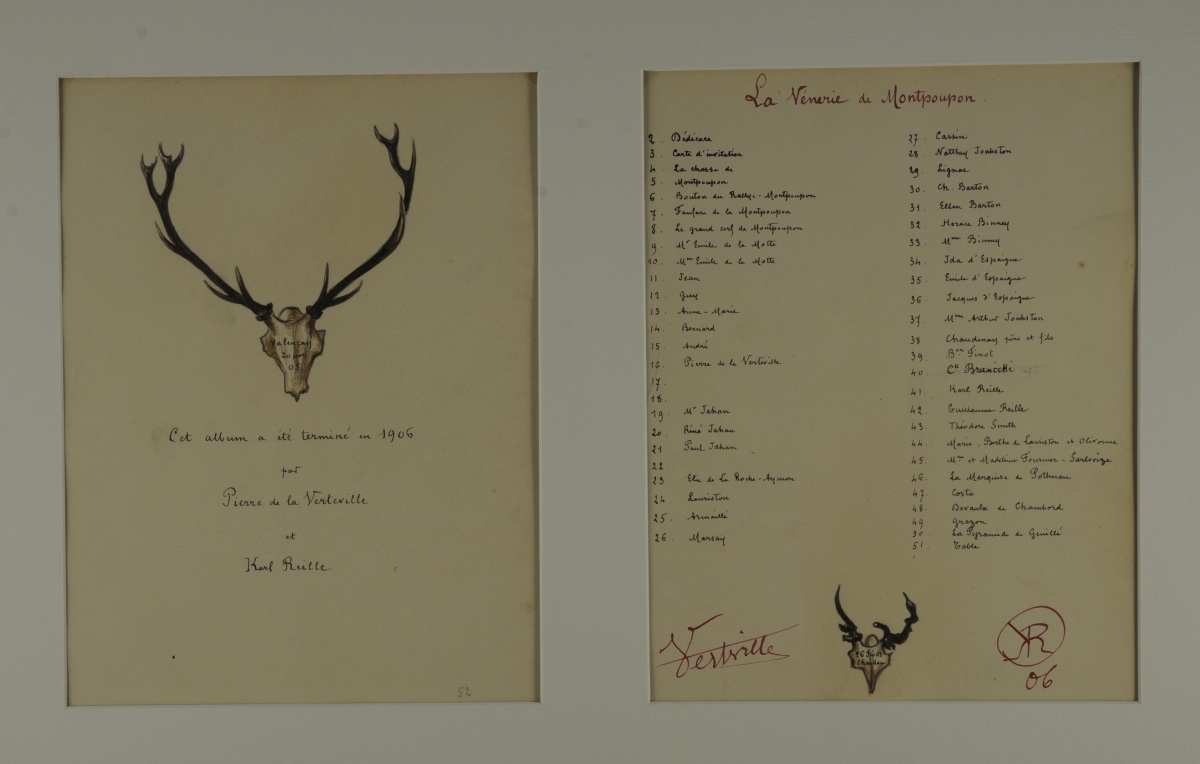 Valençay
20 Nov
05
Cet album a été terminé en 1906
par
Pierre de la Verteville
et
Karl Reille
52
La Vénerie de Montpoupon
2. Dédicace
3. Carte d'invitation
4. La chasse de
5. Montpoupon
6. Bouton du Rallye-Montpoupon
7. Fanfare de la Montpoupon
8. Le grand cerf de Montpoupon
9. Mr Emile de la Motte
10. Mme Emile de la Motte
11. Jean
12. Guy
13. Anne-Marie
14. Bernard
15. André
16. Pierre de la Verteville
17.
18.
19. Mr Jahan
20. Réné Jahan
21. Paul Jahan
22
23. Elie de La Roche-Aymon
24. Lauriston
25. Armaillé
26. Marsay
27. Cassin
28. Natthey Jonhston
29. Lignac
30. Ch. Barton
31. Ellen Barton
32. Horace Binney
33. Mme Binney
34. Ida d'Espaigne
35. Emile d'Espaigne
36. Jacques d'Espaigne
37. Mme Arthur Jonhston
38. Chaudenay père et fils
39. Bon Finot
40. Cte Branicki
41. Karl Reille
42. Guillaume Reille
43. Théodore Smith
44. Marie, Berthe de Lauriston et Olivonne
45. Mme et Madeleine Fournier-Sarlovèze
46. La Marquise de
47. Costa
48. Devaulx de Chambord
49. Grazon
50. La Pyramide de Genillé
51. Table
Vertville
KR
06